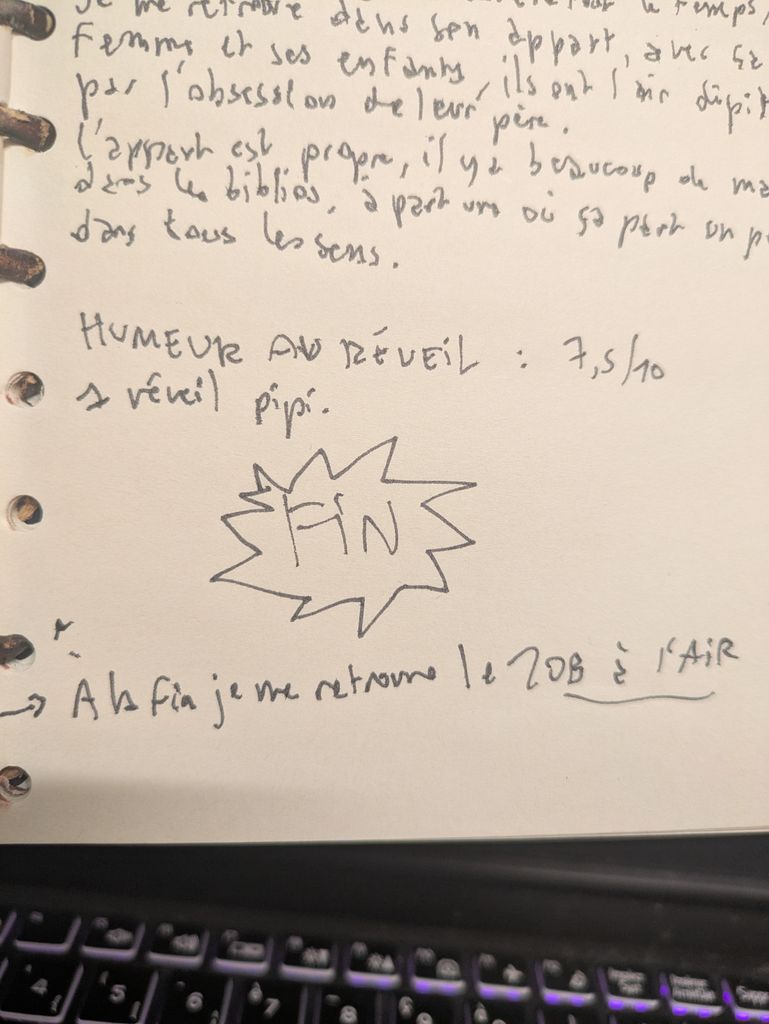 Je me retrouve dans son appart, avec sa
femme et ses enfants, ils ont l'air dépit
par l'obsession de leur père.
L'appart est propre, il y a beaucoup de ma
dans les biblios, à part une où ça part un p
dans tous les sens.
HUMEUR AU RÉVEIL : 7,5/10
1 réveil pipi.
FiN
→ A la fin je me retrouve le ZOB à l'AiR
4 5 6 7 8